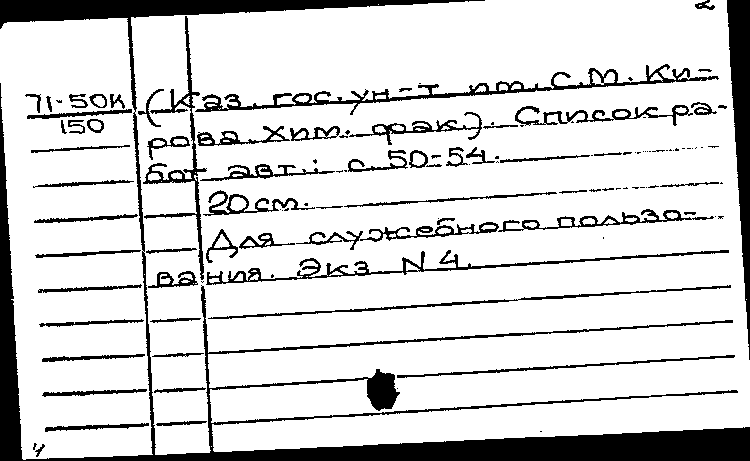 2
71-50К (Каз. гос. ун-т им. С.М. Ки-
150
рова. Хим. фак.). Список ра-
бот авт.: с. 50-54.
20 см.
Для служебного пользо-
вания. Экз N 4.
4